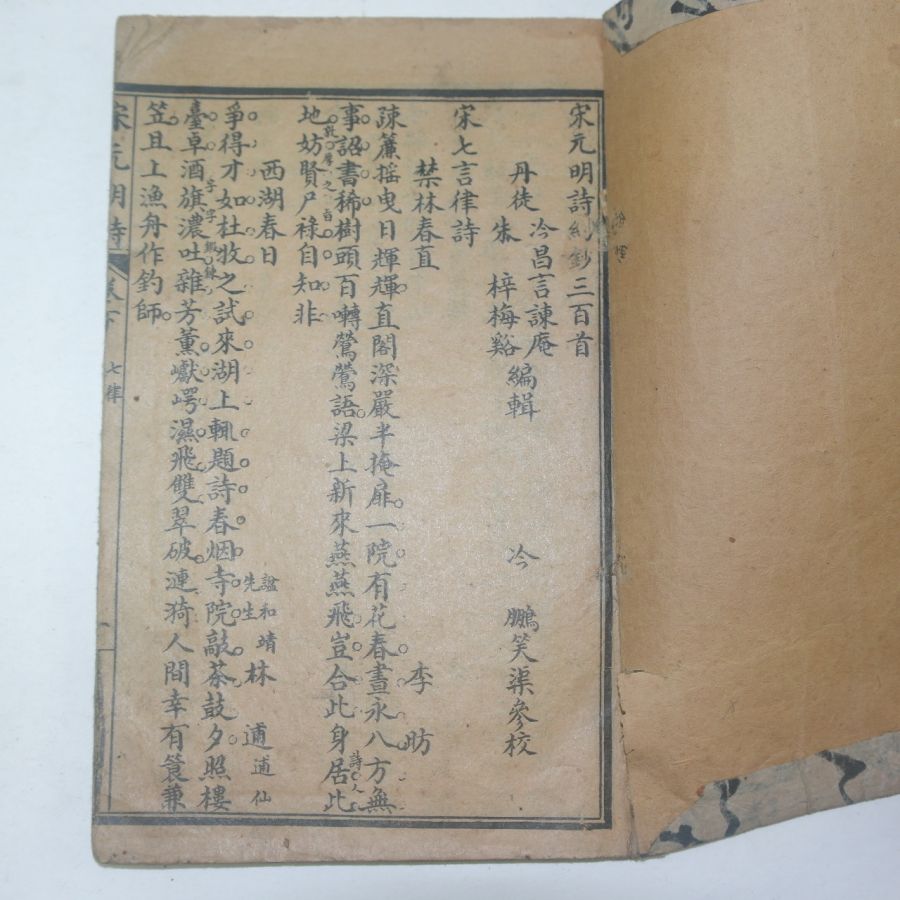 宋元明詩約鈔三百首
丹徒 冷昌言諫庵 朱梓梅谿 編輯 冷鵬笑渠參校
宋七言律詩
禁林春直 李昉
疎簾搖曳日輝輝直閣深嚴半掩扉一院有花春晝永八方無
事詔書稀樹頭百囀鶯鶯語梁上新來燕燕飛豈合此身居此
地妨賢尸祿自知非
西湖春日 諡和靖先生 林逋 逋仙
爭得才如杜牧之試來湖上輒題詩春烟寺院敲茶鼓夕照樓
臺卓酒旗濃吐雜芳薰巘崿濕飛雙翠破漣漪人間幸有簑兼
笠且上漁舟作釣師
宋元明詩 卷下 七律 一